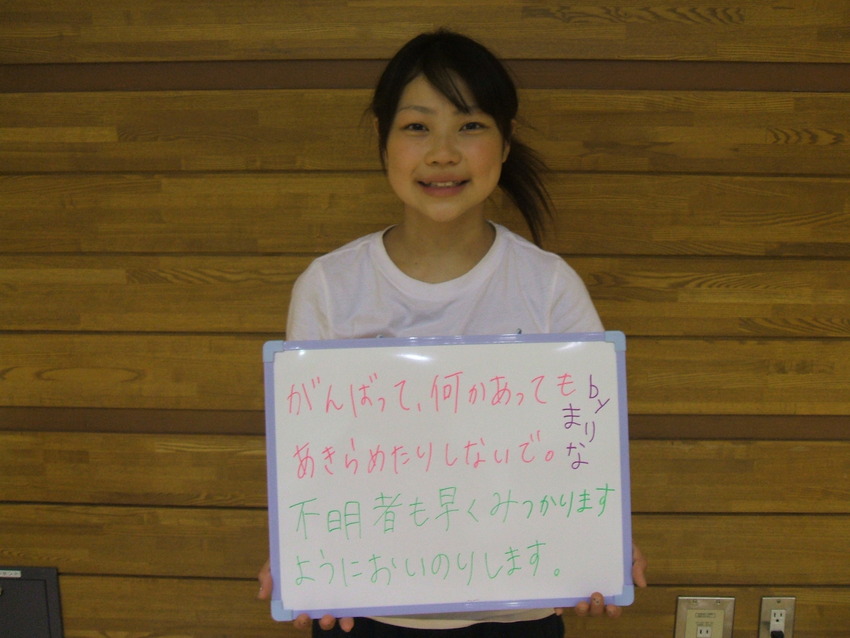 がんばって、何かあっても
あきらめたりしないで。
不明者も早くみつかります
ようにおいのりします。
by
まりな